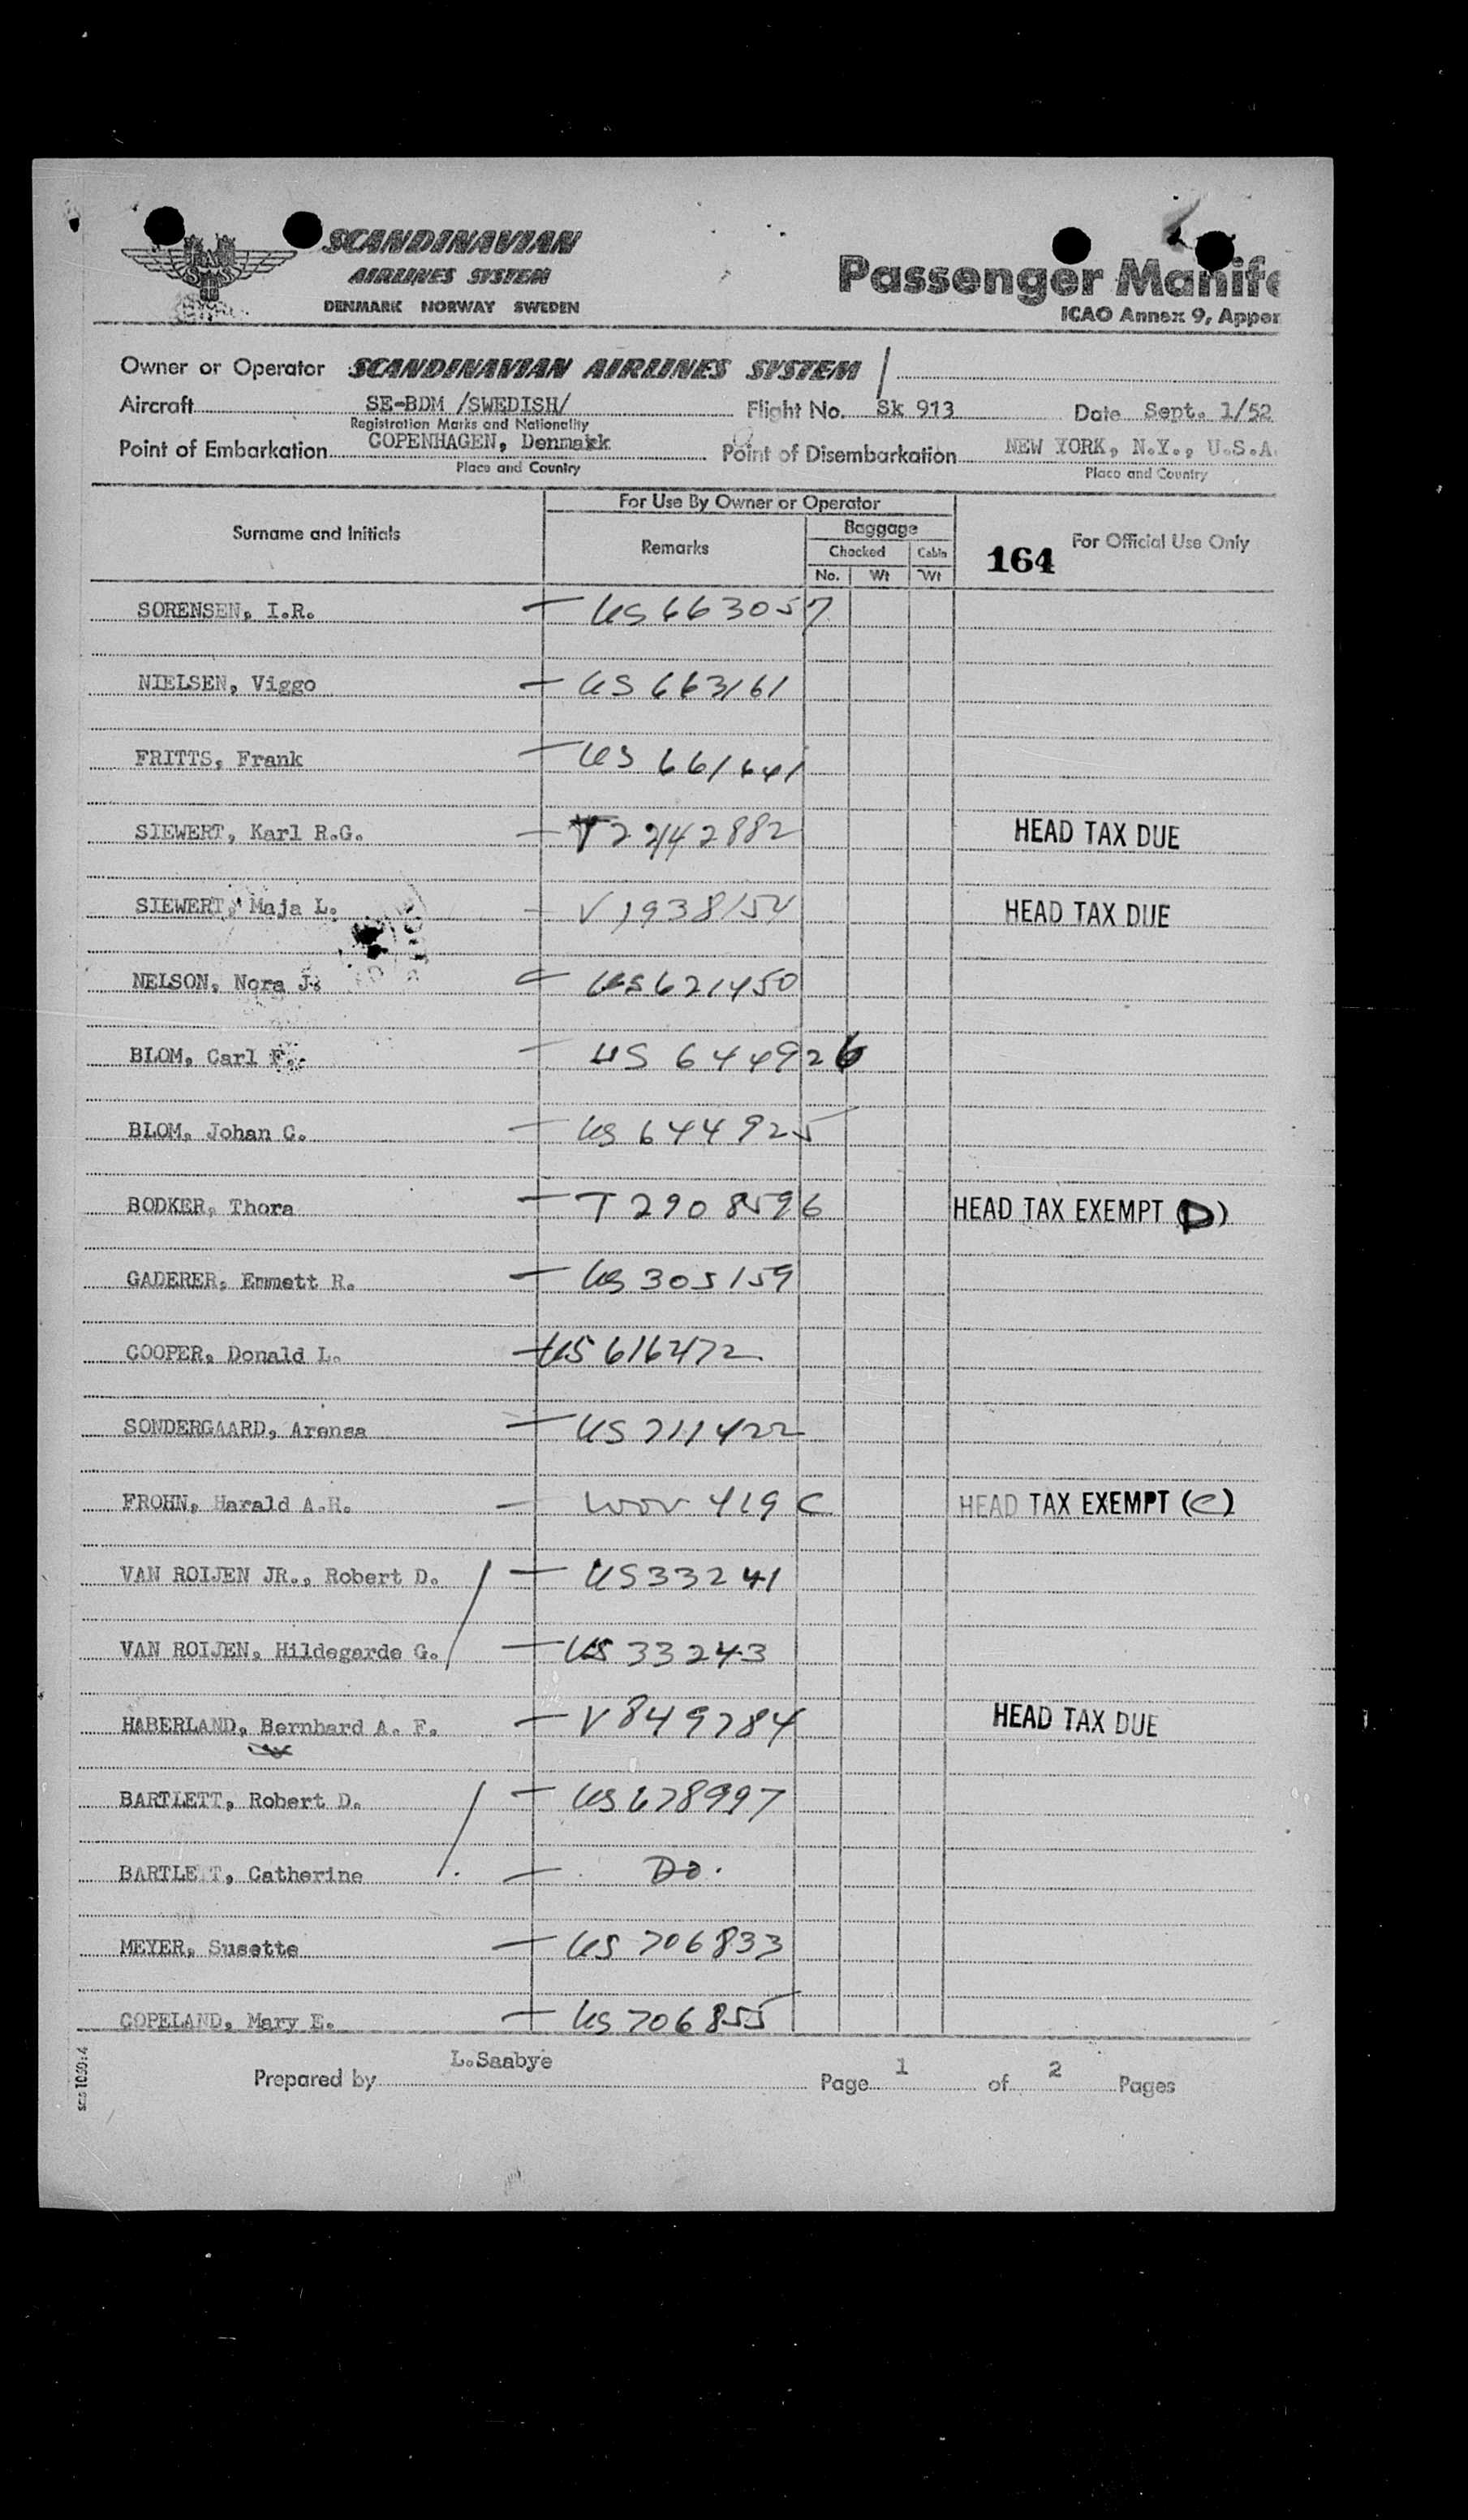 SCANDINAVIAN
AIRLINES SYSTEM
DENMARK NORWAY SWEDEN
Passenger Manife
ICAO Annex 9, Appen
Owner or Operator SCANDINAVIAN AIRLINES SYSTEM
Aircraft SE-BDM /SWEDISH/ Flight No. Sk 913 Date Sept. 1/52
Registration Marks and Nationality
Point of Embarkation COPENHAGEN, Denmark Point of Disembarkation NEW YORK, N.Y., U.S.A.
Place and Country Place and Country
For Use By Owner or Operator
Surname and Initials Remarks Baggage 164 For Official Use Only
Checked Cabin
No. Wt Wt
SORENSEN, I.R. — US 663057
NIELSEN, Viggo — US 663161
FRITTS, Frank — US 661641
SIEWERT, Karl R.G. — HEAD TAX DUE
SIEWERT, Maja L. — V 1938154 HEAD TAX DUE
NELSON, Nora J. US 621450
BLOM, Carl F. — US 644926
BLOM, Johan C. — US 644925
BODKER, Thora — T 2908596 HEAD TAX EXEMPT (D)
GADERER, Emmett R. — US 305159
COOPER, Donald L. US 616472
SONDERGAARD, Arensa — US 711422
FROHN, Harald A.H. — 419 C HEAD TAX EXEMPT (C)
VAN ROIJEN JR., Robert D. — US 33241
VAN ROIJEN, Hildegarde G. — US 33243
HABERLAND, Bernhard A. F. — V 849784 HEAD TAX DUE
BARTLETT, Robert D. — US 678997
BARTLETT, Catherine — Do.
MEYER, Susette — US 706833
COPELAND, Mary E. — US 706855
Prepared by L.Saabye Page 1 of 2 Pages